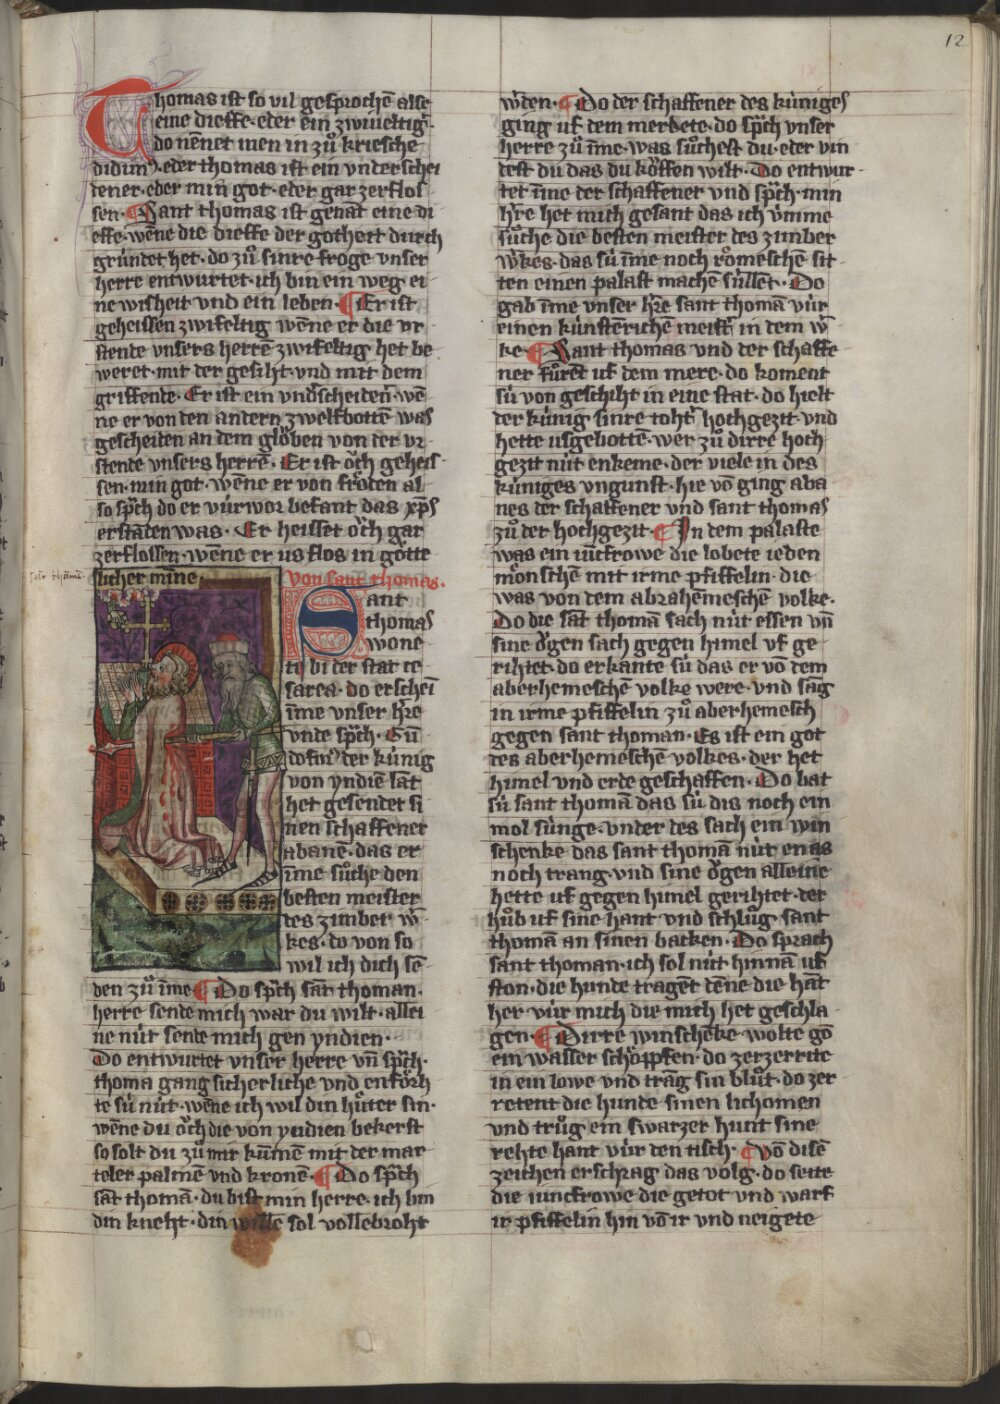 12
Thomas ist so vil gesprochē alse
eine dieffe·eder ein zwiueltig᛫
do nēnet men in zuͦ kriesche
didimꝰ·eder thomas ist ein vnderschei
dener·eder min got·eder gar zerflos
sen·Sant thomas ist genāt eine di
effe·wēne die dieffe der gotheit durch
gründet het·do zuͦ sinre froge vnser
herre entwurtet·ich bin ein weg ei
ne wisheit vnd ein leben·Er ist
geheissen zwifeltig wēne er die vr
stende vnsers herrē zwifeltig het be
weret·mit der gesiht·vnd mit dem
griffende·Er ist ein vndscheidener·wē
ne er von den andern zwelfbottē was
gescheiden an dem gloͤben von der vr
stende vnsers herrē·Er ist oͮch geheis
sen·min got·wēne er von froͤden al
so sp̄ch do er vúrwor befant das xp̄s
erstāden was·Er heisset oͮch gar
zerflossen·wēne er us flos in goͤtte
licher mīne·
von sant thomas·
Sant
thomas
wone
te bi der stat ce
sarea·do erscheī
īme vnser h're
vnde sp̄ch·Gū
dofimꝰ der kúnig
von yndiē lāt
het gesendet si
nen schaffener
abanē·das er
īme suͦche den
besten meister
des zimber w̄
kes·do von so
wil ich dich sē
den zuͦ īme·Do sp̄ch sāt thoman·
herre sende mich war du wilt·allei
ne nút sende mich gen yndien·
Do entwurtet vnser herre vn̄ sp̄ch·
thoma gang sicherliche vnd enfoͤrh
te sú nút·wēne ich wil din huͤter sin·
wēne du oͮch die von yndien bekerst
so solt du zuͦ mir kūmē mit der mar
teler palmē vnd kronē·Do sp̄ch
sāt thomā·du bist min herre·ich bin
din kneht·din wille sol vollebroht
w'den·Do der schaffener des kúniges
ging uf dem merkete·do sp̄ch vnser
herre zuͦ īme·was suͦchest du·eder vin
dest du das du koͤffen wilt·Do entwur
tet īme der schaffener vnd sp̄ch·min
h're het mich gesant das ich ym̄me
suͦche die besten meister des zimber
w'kes·das sú īme noch roͤmeschē sit
ten einen palast machē súllēt·Do
gab īme vnser h're sant thomā vúr
einen kúnsterichē meist' in dem w̄
ke·Sant thomas vnd der schaffe
ner fuͦrēt uf dem mere·do koment
sú von geschiht in eine stat·do hielt
der kúnig sinre toht' hochgezit·vnd
hette usgebottē·wer zuͦ dirre hoch
gezit nút enkeme·der viele in des
kúniges vngunst·hie vō ging aba
nes der schaffener vnd sant thomas
zuͦ der hochgezit·In dem palaste
was ein iūcfrowe die lobete ieden
moͤnschē mit irme pfiffelin·die
was von dem abrahēmeschē volke·
Do die sāt thomā sach nút essen vn̄
sine oͮgen sach gegen himel vf ge
rihtet·do erkante sú das er vō dem
aberhemeschē volke were·vnd sāg
in irme pfiffelin zuͦ aberhemesch
gegen sant thoman·Es ist ein got
des aberhemeschē volkes·der het
himel vnd erde geschaffen·Do bat
sú sant thomā das sú dis noch ein
mol súnge·vnder des sach ein win
schenke das sant thomā nút enas
noch trang·vnd sine oͮgen alleine
hette uf gegen himel gerihtet·der
huͦb uf sine hant vnd schluͦg sant
thomā an sinen backen·Do sprach
sant thoman·ich sol nút hinnā uf
ston·die hunde tragēt dēne die hāt
her vúr mich die mich het geschla
gen·Dirre winschēke wolte gō
ein wasser schoͤppfen·do zerzerrete
in ein lowe vnd trāg sin bluͦt·do zer
retent die hunde sinen lichomen
vnd truͦg ein swarzer hunt sine
rehte hant vúr den tisch·vō disē
zeichen erschrag das volg·do seite
die iuncfrowe die getot vnd warf
ir pfiffelin hin vō ir vnd neigete